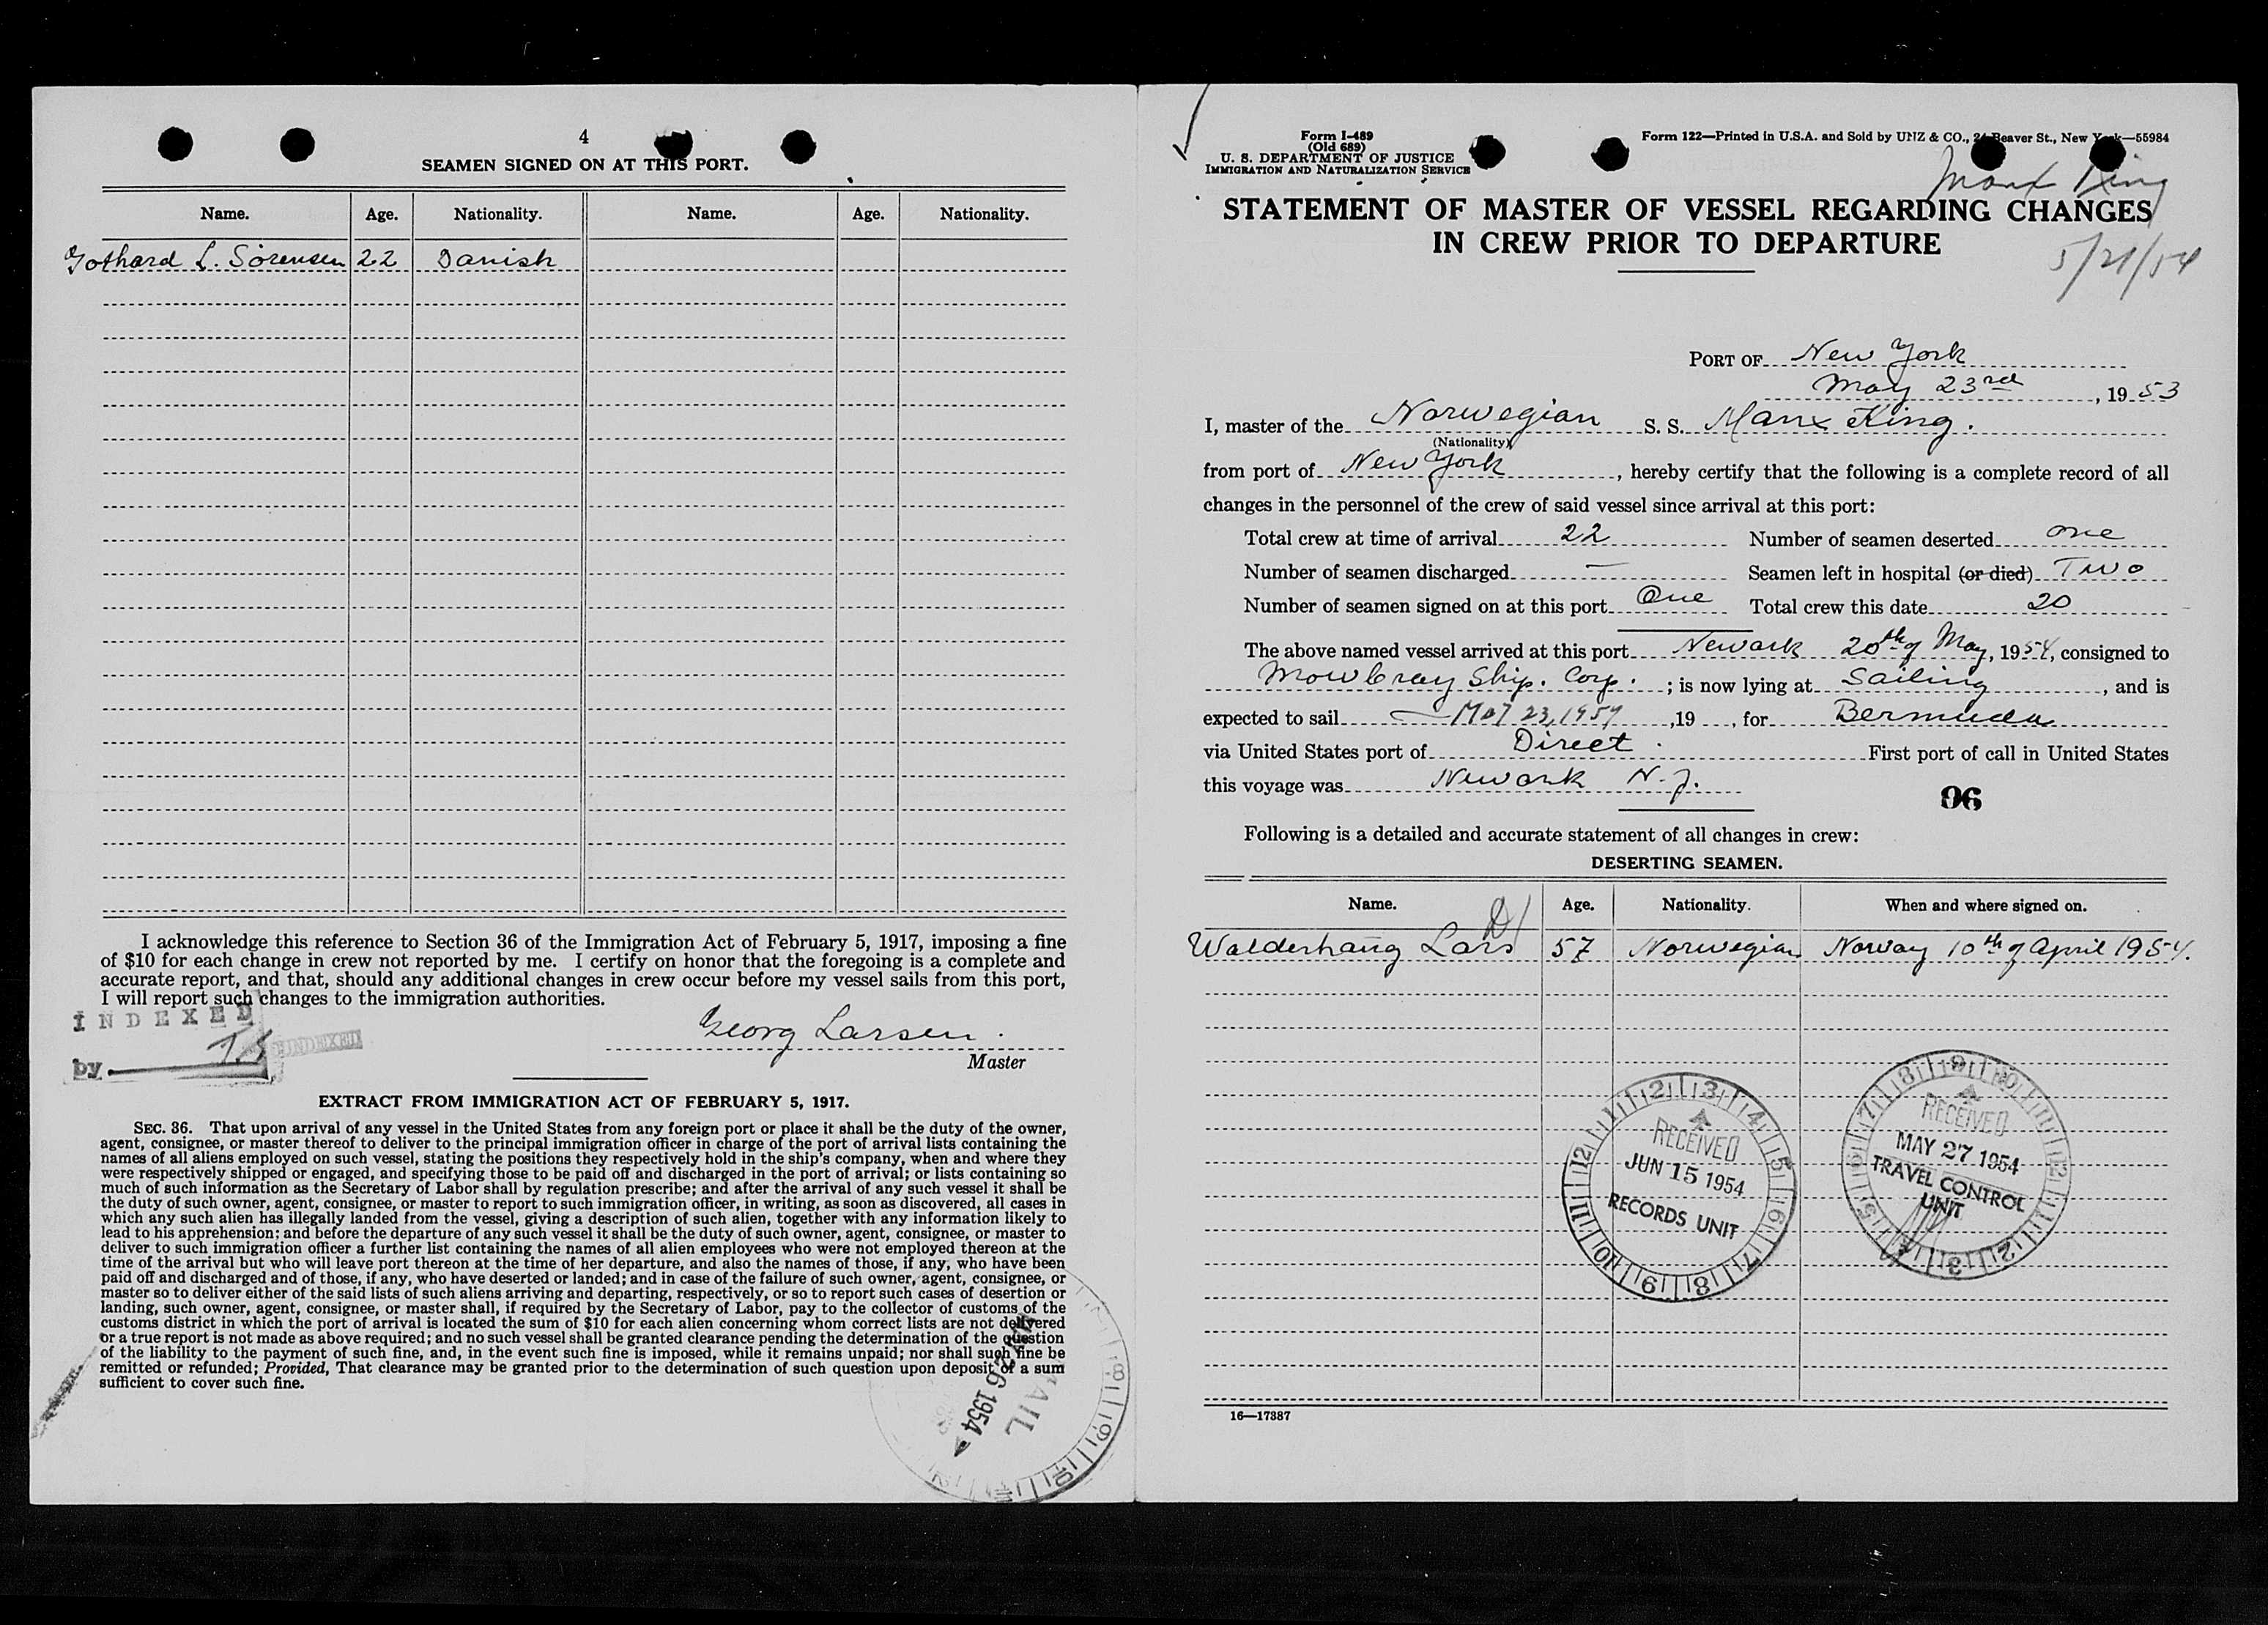 4
SEAMEN SIGNED ON AT THIS PORT.
Name. Age. Nationality. Name. Age. Nationality.
Gothard L. Sörensen 22 Danish
I acknowledge this reference to Section 36 of the Immigration Act of February 5, 1917, imposing a fine
of $10 for each change in crew not reported by me. I certify on honor that the foregoing is a complete and
accurate report, and that, should any additional changes in crew occur before my vessel sails from this port,
I will report such changes to the immigration authorities.
INDEXED
by
INDEXED
Georg Larsen.
Master
EXTRACT FROM IMMIGRATION ACT OF FEBRUARY 5, 1917.
SEC. 36. That upon arrival of any vessel in the United States from any foreign port or place it shall be the duty of the owner,
agent, consignee, or master thereof to deliver to the principal immigration officer in charge of the port of arrival lists containing the
names of all aliens employed on such vessel, stating the positions they respectively hold in the ship's company, when and where they
were respectively shipped or engaged, and specifying those to be paid off and discharged in the port of arrival; or lists containing so
much of such information as the Secretary of Labor shall by regulation prescribe; and after the arrival of any such vessel it shall be
the duty of such owner, agent, consignee, or master to report to such immigration officer, in writing, as soon as discovered, all cases in
which any such alien has illegally landed from the vessel, giving a description of such alien, together with any information likely to
lead to his apprehension; and before the departure of any such vessel it shall be the duty of such owner, agent, consignee, or master to
deliver to such immigration officer a further list containing the names of all alien employees who were not employed thereon at the
time of the arrival but who will leave port thereon at the time of her departure, and also the names of those, if any, who have been
paid off and discharged and of those, if any, who have deserted or landed; and in case of the failure of such owner, agent, consignee, or
master so to deliver either of the said lists of such aliens arriving and departing, respectively, or so to report such cases of desertion or
landing, such owner, agent, consignee, or master shall, if required by the Secretary of Labor, pay to the collector of customs of the
customs district in which the port of arrival is located the sum of $10 for each alien concerning whom correct lists are not delivered
or a true report is not made as above required; and no such vessel shall be granted clearance pending the determination of the question
of the liability to the payment of such fine, and, in the event such fine is imposed, while it remains unpaid; nor shall such fine be
remitted or refunded; Provided, That clearance may be granted prior to the determination of such question upon deposit of a sum
sufficient to cover such fine.
MAIL
26 1954
Form I-489
(Old 689)
U. S. DEPARTMENT OF JUSTICE
IMMIGRATION AND NATURALIZATION SERVICE
Form 122—Printed in U.S.A. and Sold by UNZ & CO., 24 Beaver St., New York—55984
Manx King
STATEMENT OF MASTER OF VESSEL REGARDING CHANGES
IN CREW PRIOR TO DEPARTURE
5/21/54
PORT OF New York
May 23rd, 1953
I, master of the Norwegian S. S. Manx King.
(Nationality)
from port of New York, hereby certify that the following is a complete record of all
changes in the personnel of the crew of said vessel since arrival at this port:
Total crew at time of arrival 22 Number of seamen deserted one
Number of seamen discharged — Seamen left in hospital (or died) Two
Number of seamen signed on at this port One Total crew this date 20
The above named vessel arrived at this port Newark 20th of May, 1954, consigned to
Mowbray Ship. Corp. ; is now lying at Sailing, and is
expected to sail May 23, 1954, 19 , for Bermuda
via United States port of Direct. First port of call in United States
this voyage was Newark N.J.
96
Following is a detailed and accurate statement of all changes in crew:
DESERTING SEAMEN.
Name. Age. Nationality. When and where signed on.
Walderhaug Lars 57 Norwegian Norway 10th of April 1954.
RECEIVED
JUN 15 1954
RECORDS UNIT
RECEIVED
MAY 27 1954
TRAVEL CONTROL
UNIT
16—17387